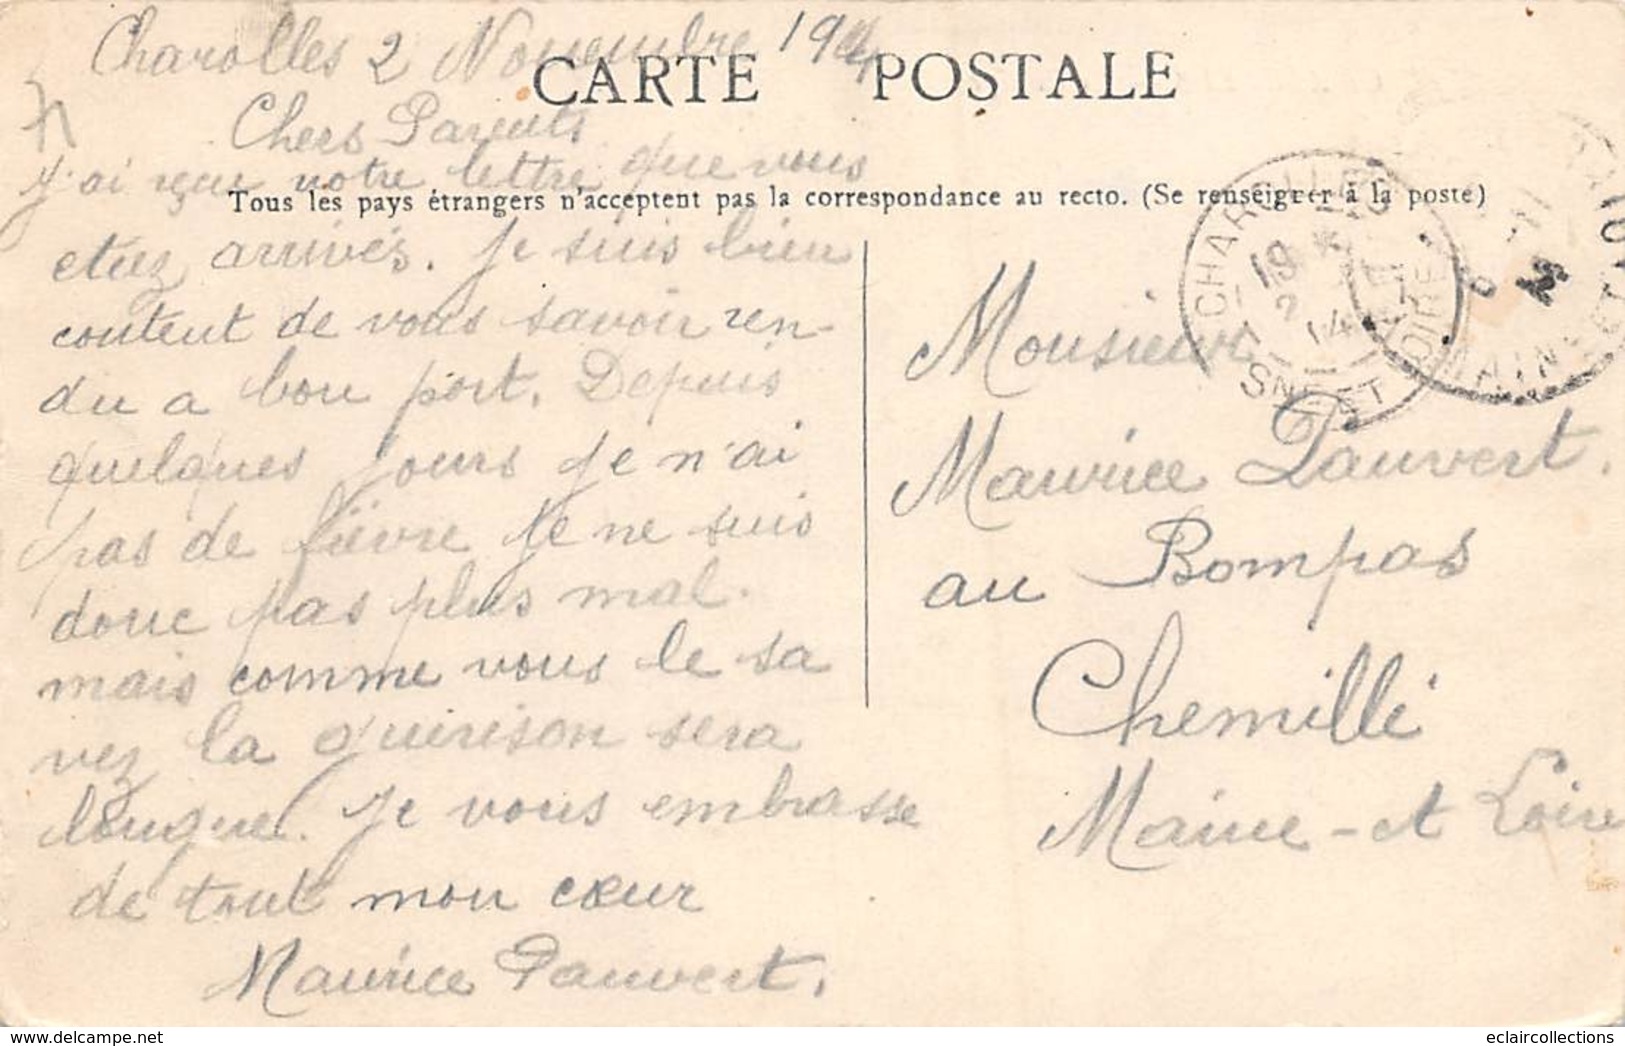 Charolles 2 Novembre 1914
CARTE POSTALE
Chers Parents
J'ai reçu votre lettre que vous
Tous les pays étrangers n'acceptent pas la correspondance au recto. (Se renseigner à la poste)
etiez arrivés. Je suis bien
content de vous savoir ren-
du a bon port. Depuis
quelques jours je n'ai
pas de fièvre Je ne suis
donc pas plus mal.
mais comme vous le sa
vez la guirison sera
longue. Je vous embrasse
de tout mon cœur
Maurice Pauvert.
CHAROLLES
19
2 11
14
SNE ET LOIRE
MAINE ET
Monsieur
Maurice Pauvert.
au Bompas
Chemillé
Maine-et Loire
eclaircollections
www.delcampe.net